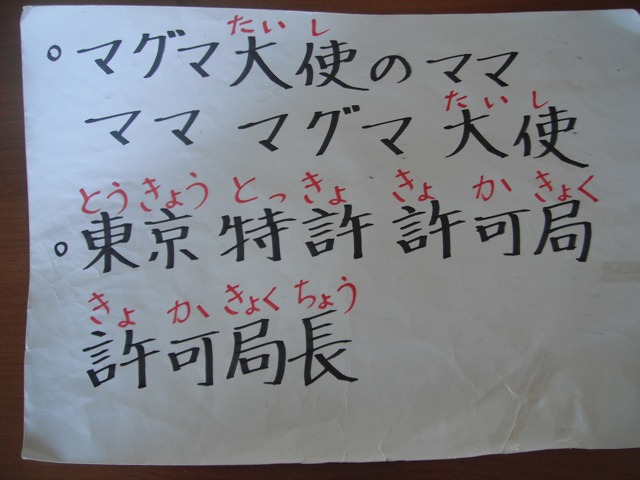 たいし
。マグマ大使のママ
たいし
ママ マグマ 大使
とうきょう とっきょ きょ か きょく
。東京 特許 許可局
きょ か きょく ちょう
許可局長